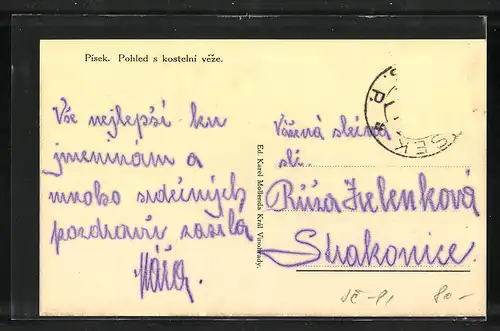 Písek. Pohled s kostelní věže.
Vše nejlepší ku
jmeninám a
mnoho srdečných
pozdravů zasílá
Máňa.
Ed. Karel Mollenda Král. Vinohrady.
SEK
Vážená slečna
sl.
Růža Zelenková
Strakonice.
80-